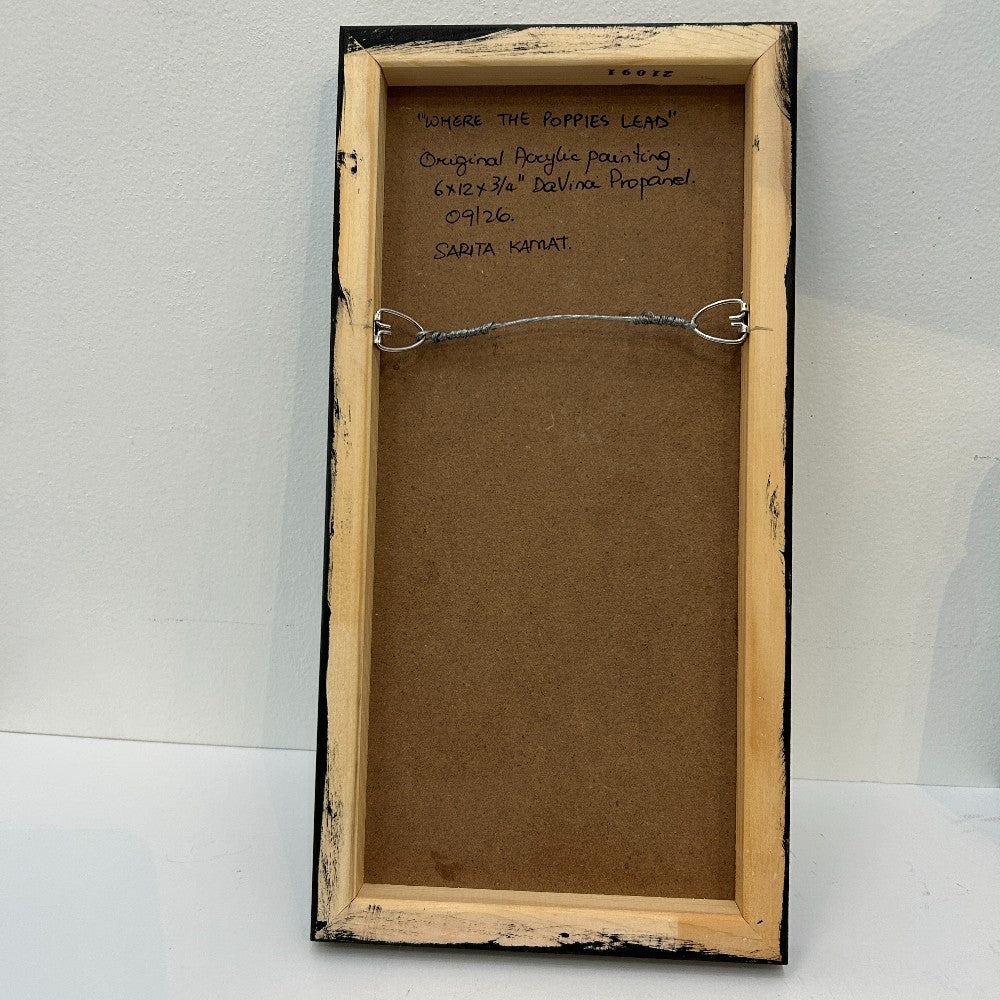 21091
"WHERE THE POPPIES LEAD"
Original Acrylic painting.
6x12x3/4" DaVinci Propanel.
09/26.
SARITA KAMAT.